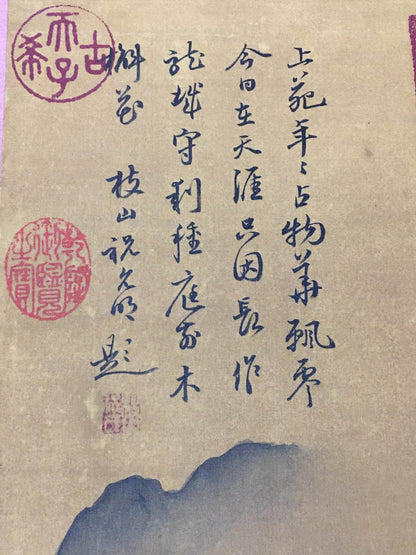 上苑年々占物華飄零
今日在天涯只因長作
龍城守剩種庭前木
槲花 枝山祝允明題
古希天子
乾隆御覽之寶